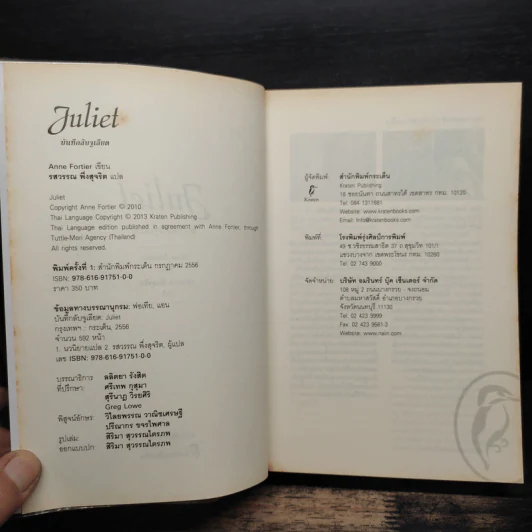 Juliet
บันทึกลับจูเลียต
Anne Fortier เขียน
รสวรรณ พึ่งสุจริต แปล
Juliet
Copyright Anne Fortier © 2010
Thai Language Copyright © 2013 Kraten Publishing
Thai Language edition published in agreement with Anne Fortier, through
Tuttle-Mori Agency (Thailand)
All rights reserved.
พิมพ์ครั้งที่ 1: สำนักพิมพ์กระเต็น กรกฎาคม 2556
ISBN: 978-616-91751-0-0
ราคา 350 บาท
ข้อมูลทางบรรณานุกรม: ฟอเทีย, แอน
บันทึกลับจูเลียต: Juliet
กรุงเทพฯ : กระเต็น, 2556
จำนวน 592 หน้า
1. นวนิยายแปล 2. รสวรรณ พึ่งสุจริต, ผู้แปล
เลข ISBN: 978-616-91751-0-0
บรรณาธิการ ลลิตยา รังสิต
ที่ปรึกษา: ศรีเทพ กุสุมา
สุรินาฏ วีรยศิริ
Greg Lowe
พิสูจน์อักษร: วิไลพรรณ วาณิชเศรษฐี
ปรีณากร ขจรไพศาล
รูปเล่ม: สิริมา สุวรรณไตรภพ
ออกแบบปก: สิริมา สุวรรณไตรภพ
ผู้จัดพิมพ์: สำนักพิมพ์กระเต็น
Kraten Publishing
Kraten
Tel 084 1311681
Website: www.kratenbooks.com
Email: Info@kratenbooks.com
พิมพ์ที่: โรงพิมพ์รุ่งศิลป์การพิมพ์
Tel 02 743 9000
จัดจำหน่าย: บริษัท อมรินทร์ บุ๊ค เซ็นเตอร์ จำกัด
108 หมู่ 2 ถนนบางกรวย - จงถนอม
ตำบลมหาสวัสดิ์ อำเภอบางกรวย
จังหวัดนนทบุรี 11130
Tel 02 423 9999
Website: www.naiin.com